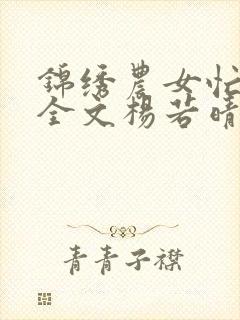 錦绣農女忙
全文楊若晴
青青子襟